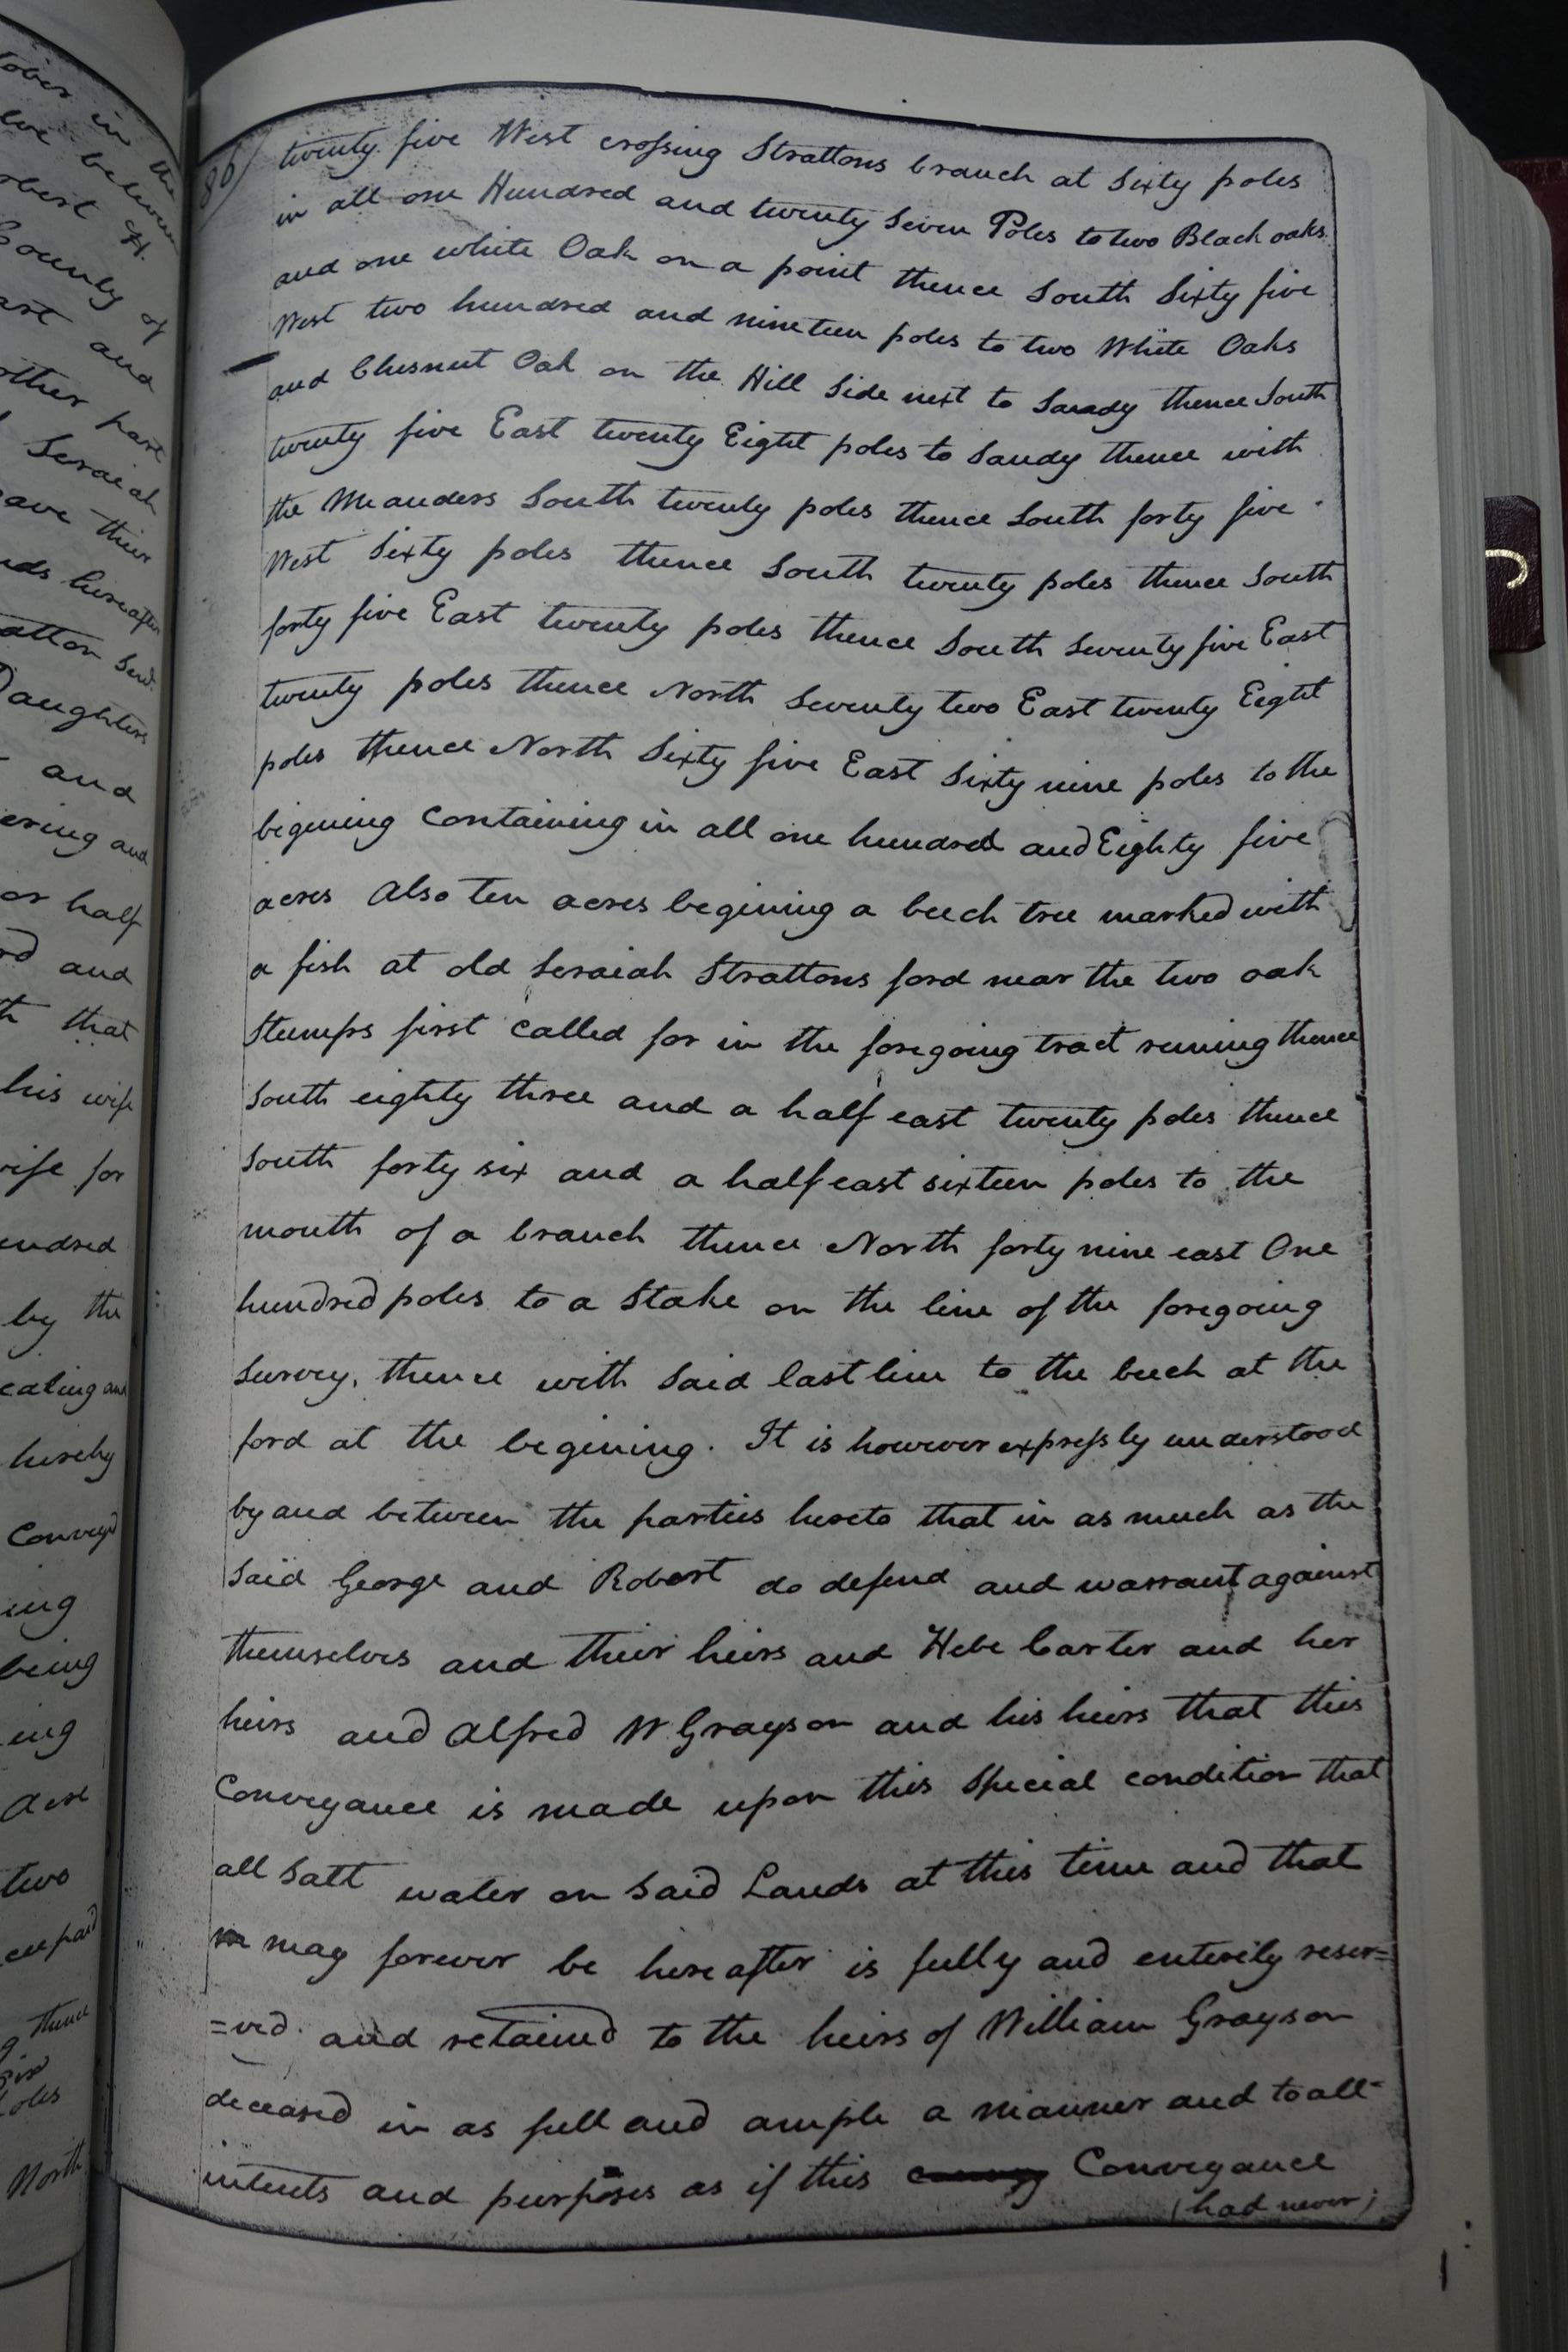 tober in the
between
obert H.
County of
ast and
other part
Seraiah
ave their
nds hereafter
atton Senr.
Daughters
and
ering and
or half
rd and
th that
his wife
wife for
undred
by the
eating and
hereby
Conveyd
ing
being
ing
two
thence
North
86
twenty five West crossing Strattons branch at Sixty poles
in all one Hundred and twenty Seven Poles to two Black oaks
and one white Oak on a point thence South Sixty five
West two hundred and nineteen poles to two White Oaks
and Chesnut Oak on the Hill Side next to Sandy thence South
twenty five East twenty Eight poles to Sandy thence with
the Meanders South twenty poles thence South forty five
West Sixty poles thence South twenty poles thence South
forty five East twenty poles thence South Seventy five East
twenty poles thence North Seventy two East twenty Eight
poles thence North Sixty five East Sixty nine poles to the
begining Containing in all one hundred and Eighty five
acres Also ten acres begining a beech tree marked with
a fish at old Seraiah Strattons ford near the two oak
Stumps first called for in the foregoing tract runing thence
South eighty three and a half east twenty poles thence
South forty six and a half east sixteen poles to the
mouth of a branch thence North forty nine east One
hundred poles to a Stake on the line of the foregoing
Survey, thence with Said last line to the beech at the
ford at the begining. It is however expressly understood
by and between the parties hereto that in as much as the
Said George and Robert do defend and warrant against
themselves and their heirs and Hebe Carter and her
heirs and Alfred W Grayson and his heirs that this
Conveyance is made upon this Special condition that
all Salt water on Said Lands at this time and that
may forever be hereafter is fully and enterily reser=
=ved and retained to the heirs of William Grayson
deceased in as full and ample a manner and to all
intents and purposes as if this Conveyance
(had never)